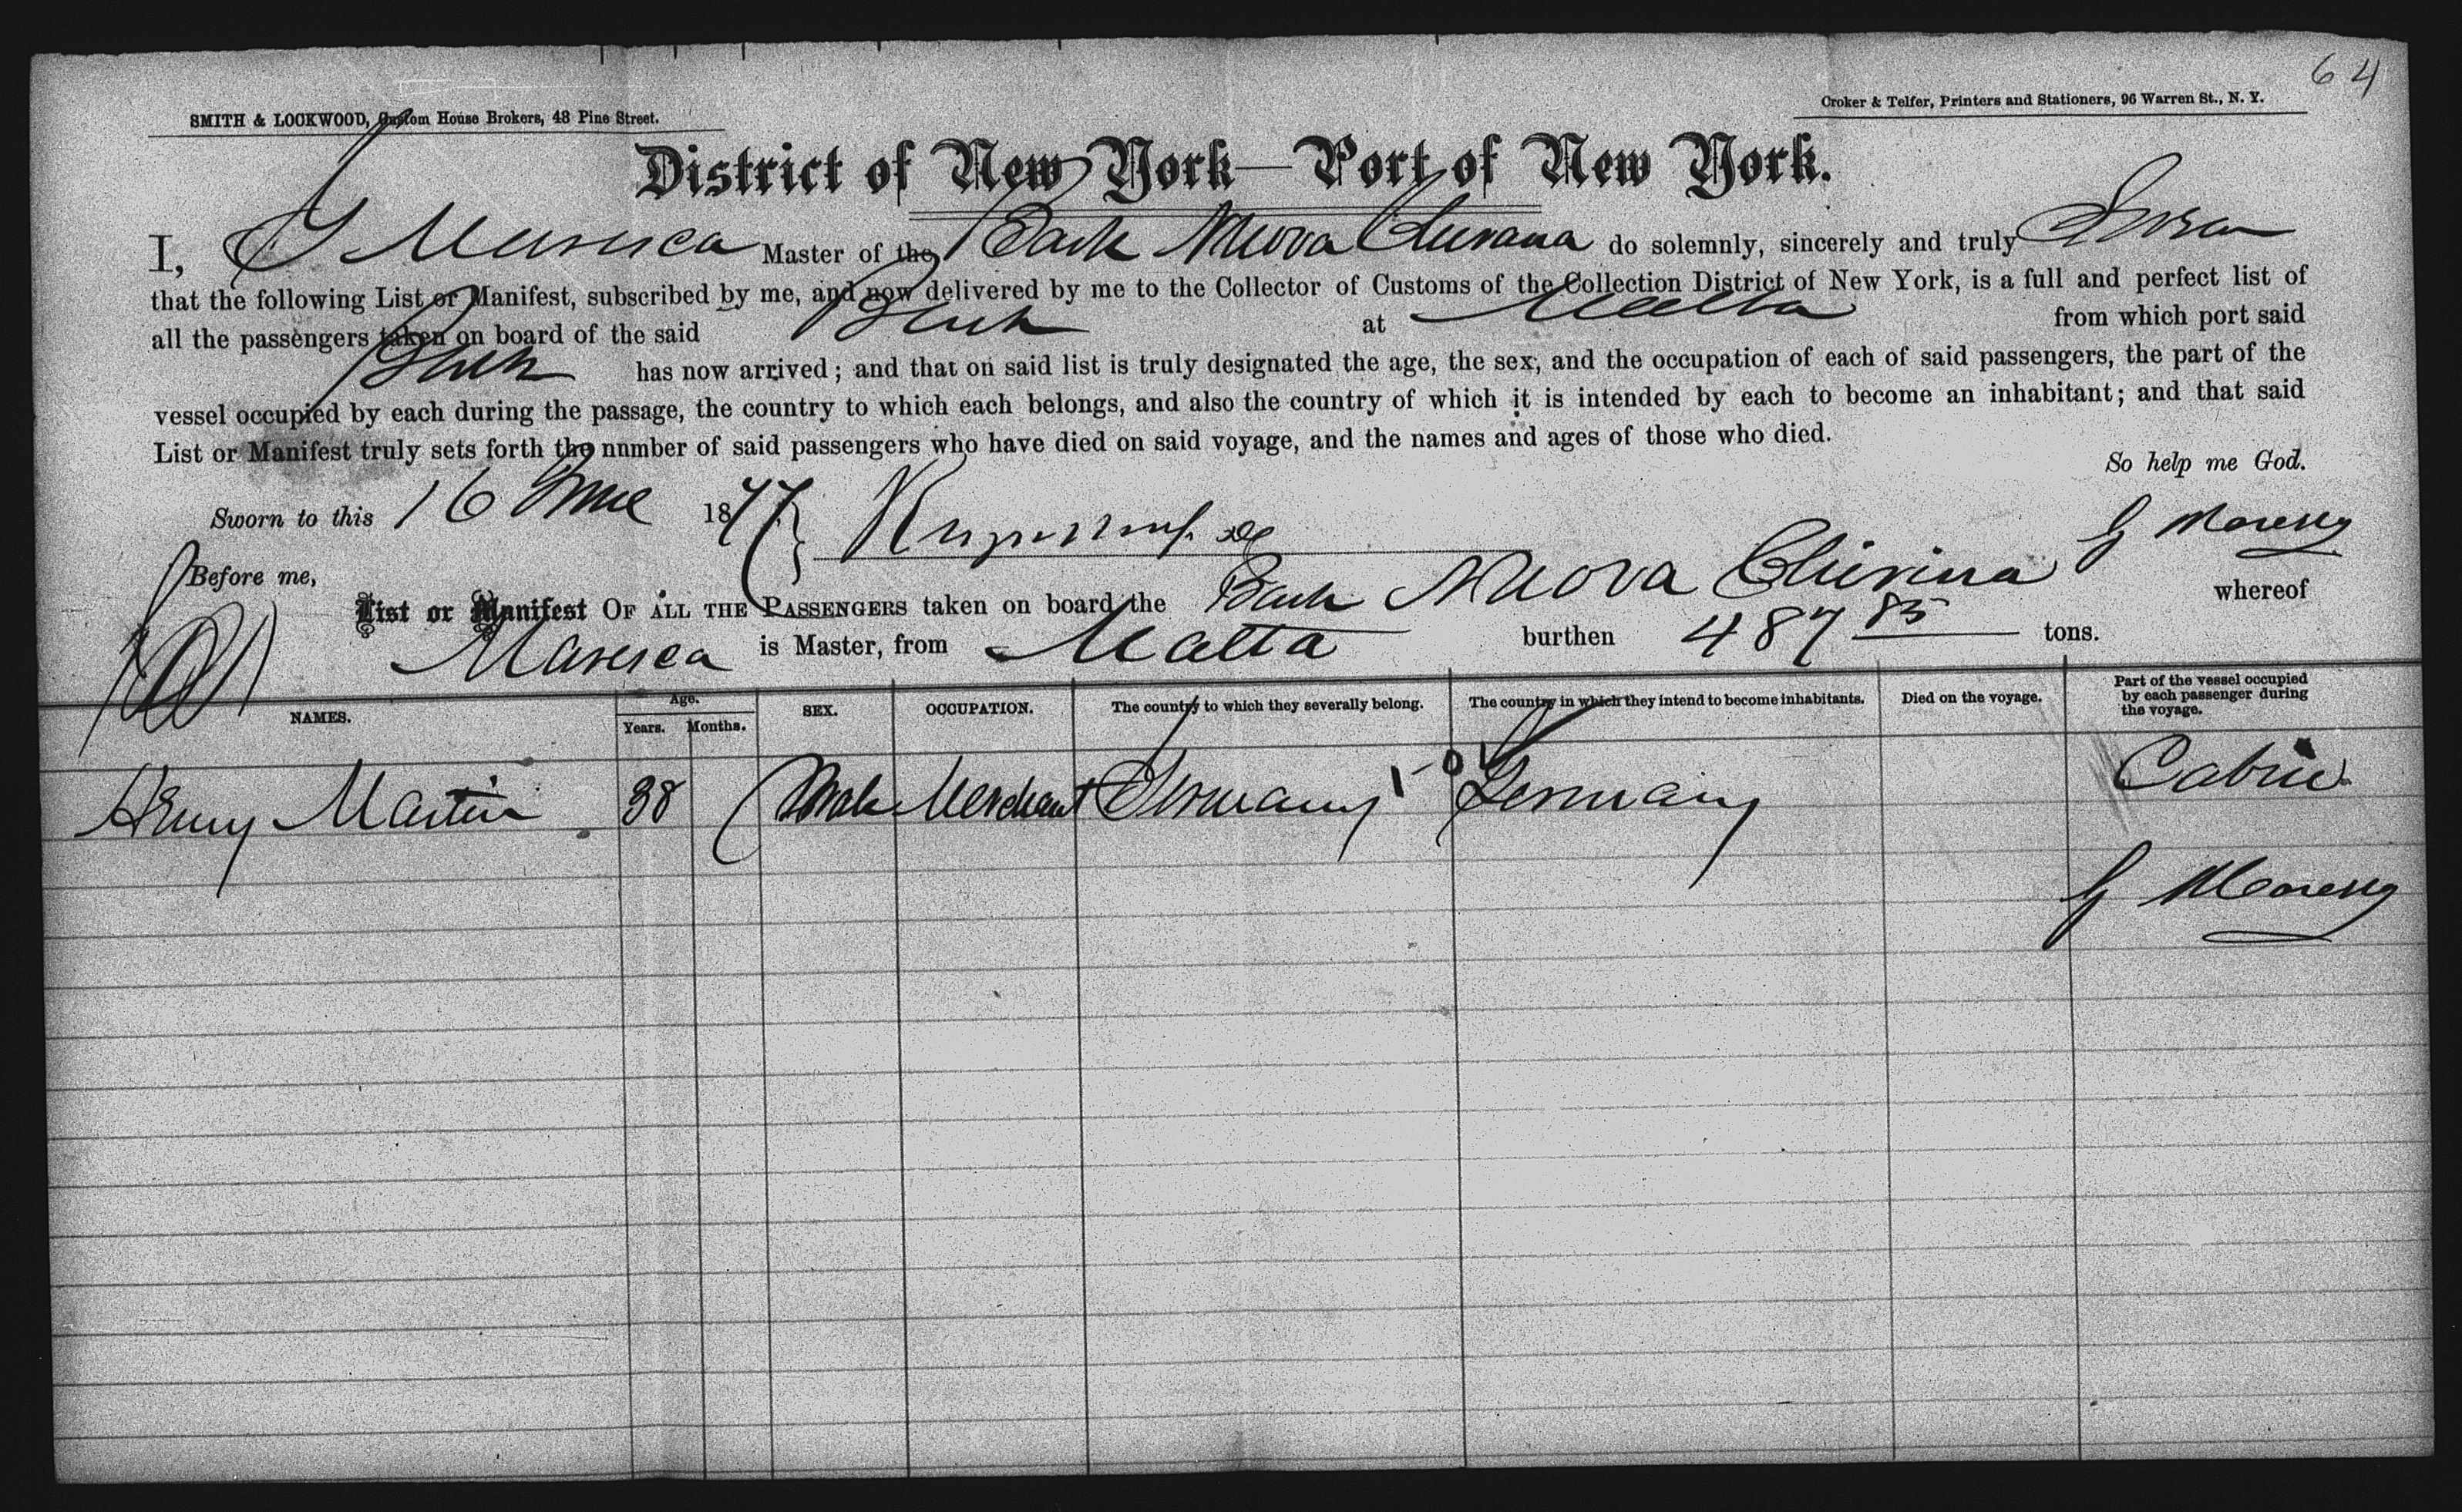 64
SMITH & LOCKWOOD, Custom House Brokers, 48 Pine Street.
Croker & Telfer, Printers and Stationers, 96 Warren St., N. Y.
District of New York—Port of New York.
I, G Maresca Master of the Bark Nuova do solemnly, sincerely and truly Swear
that the following List or Manifest, subscribed by me, and now delivered by me to the Collector of Customs of the Collection District of New York, is a full and perfect list of
all the passengers taken on board of the said Bark at Malta from which port said
Bark has now arrived; and that on said list is truly designated the age, the sex, and the occupation of each of said passengers, the part of the
vessel occupied by each during the passage, the country to which each belongs, and also the country of which it is intended by each to become an inhabitant; and that said
List or Manifest truly sets forth the nnmber of said passengers who have died on said voyage, and the names and ages of those who died.
So help me God.
Sworn to this 16 June 1877
Before me,
List or Manifest OF ALL THE PASSENGERS taken on board the Bark Nuova whereof
Maresca is Master, from Malta burthen 487 85 tons.
NAMES. Age. Years. Months. SEX. OCCUPATION. The country to which they severally belong. The country in which they intend to become inhabitants. Died on the voyage. Part of the vessel occupied by each passenger during the voyage.
Henry Martin 38 Male Merchant Germany Germany Cabin